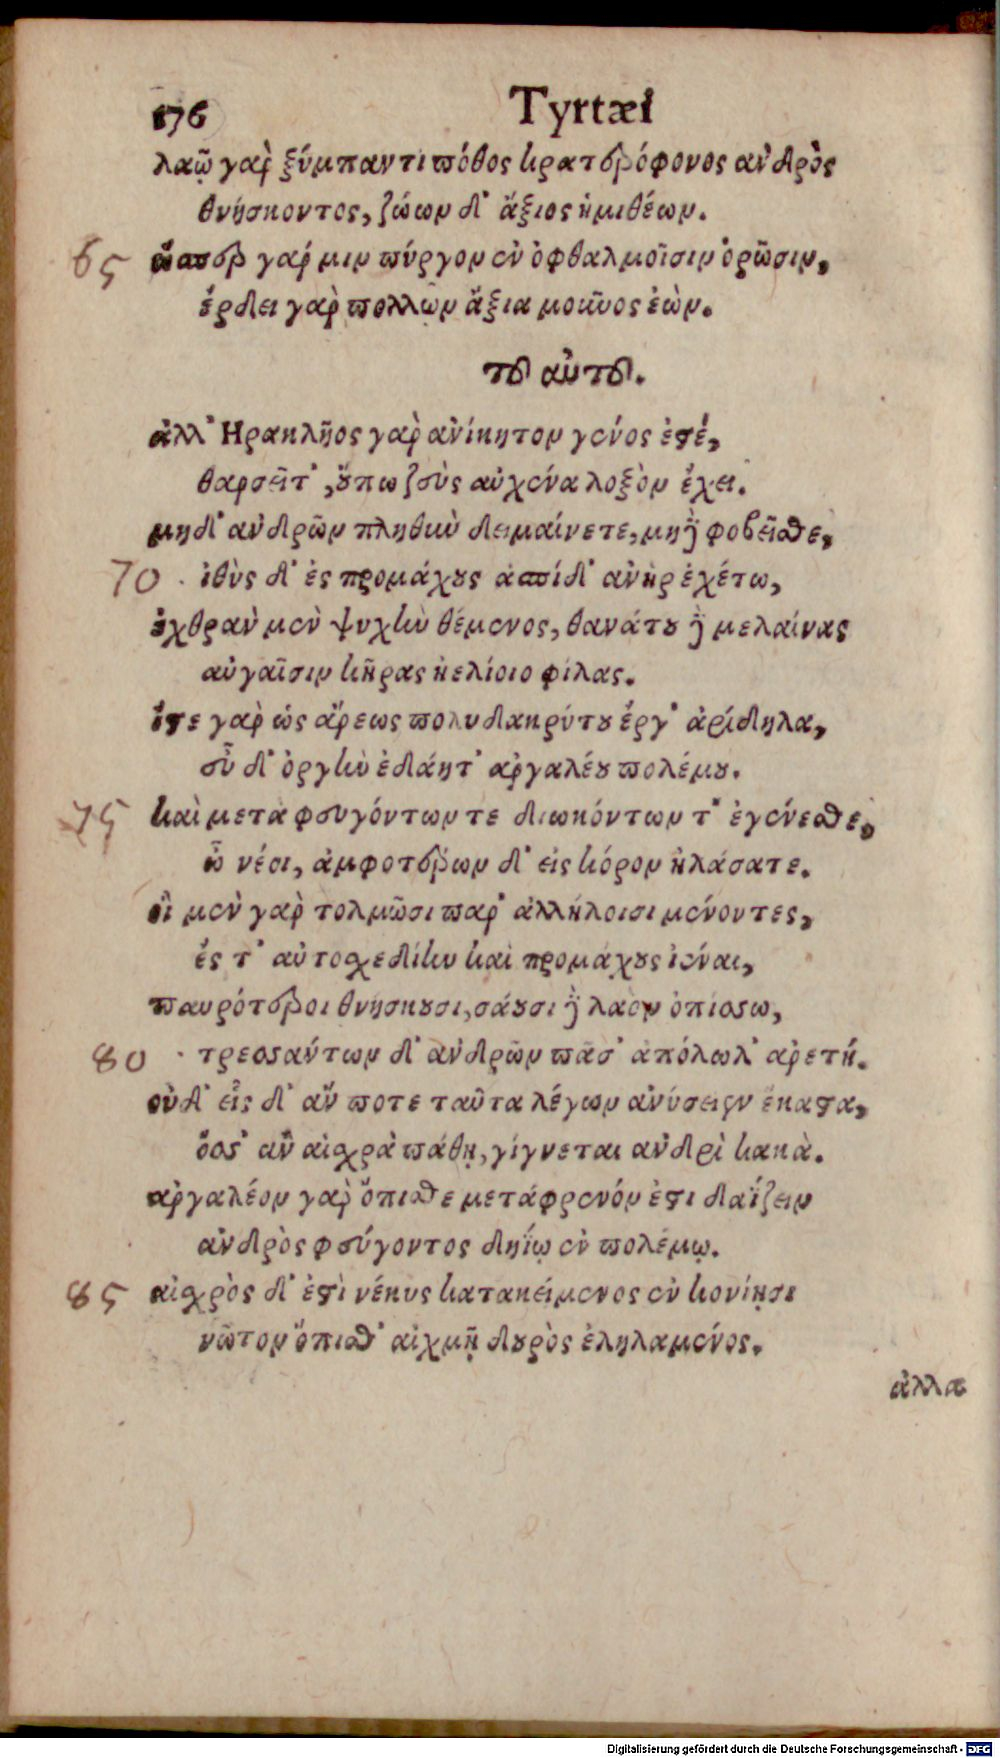 176 Tyrtæi
λαῷ γὰρ ξύμπαντι πόθος κρατερόφρονος ἀνδρὸς
θνήσκοντος, ζώων δ' ἄξιος ἡμιθέων.
65 ὥσπερ γάρ μιν πύργον ἐν ὀφθαλμοῖσιν ὁρῶσιν,
ἔρδει γὰρ πολλῶν ἄξια μοῦνος ἐών.
τοῦ αὐτοῦ.
ἀλλ' Ηρακλῆος γὰρ ἀνίκητον γένος ἐστέ,
θαρσεῖτ', οὔπω ζεὺς αὐχένα λοξὸν ἔχει.
μηδ' ἀνδρῶν πληθὺν δειμαίνετε, μὴ δὲ φοβεῖσθε,
70 ἰθὺς δ' ἐς προμάχους ἀσπίδ' ἀνὴρ ἐχέτω,
ἐχθρὰν μὲν ψυχὴν θέμενος, θανάτου δὲ μελαίνας
αὐγαῖσιν κῆρας ἠελίοιο φίλας.
ἴστε γὰρ ὡς ἄρεως πολυδακρύτου ἔργ' ἀρίδηλα,
εὖ δ' ὀργὴν ἐδάητ' ἀργαλέου πολέμου.
75 καὶ μετὰ φευγόντων τε διωκόντων τ' ἐγένεσθε,
ὦ νέοι, ἀμφοτέρων δ' εἰς κόρον ἠλάσατε.
οἳ μὲν γὰρ τολμῶσι παρ' ἀλλήλοισι μένοντες,
ἔς τ' αὐτοσχεδίην καὶ προμάχους ἰέναι,
παυρότεροι θνήσκουσι, σάουσι δὲ λαὸν ὀπίσσω,
80 τρεσσάντων δ' ἀνδρῶν πᾶσ' ἀπόλωλ' ἀρετή.
οὐδ' εἷς δ' ἄν ποτε ταῦτα λέγων ἀνύσειεν ἕκαστα,
ὅσσ' ἂν αἰσχρὰ πάθῃ, γίγνεται ἀνδρὶ κακὰ.
ἀργαλέον γὰρ ὄπισθε μετάφρενόν ἐστι δαΐζειν
ἀνδρὸς φεύγοντος δηΐῳ ἐν πολέμῳ.
85 αἰσχρὸς δ' ἐστὶ νέκυς κατακείμενος ἐν κονίῃσι
νῶτον ὄπισθ' αἰχμῇ δουρὸς ἐληλαμένος.
ἀλλα
Digitalisierung gefördert durch die Deutsche Forschungsgemeinschaft - DFG